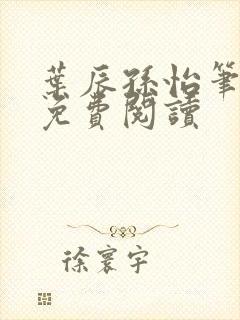 葉辰孫怡筆
免費閱讀
徐寰宇